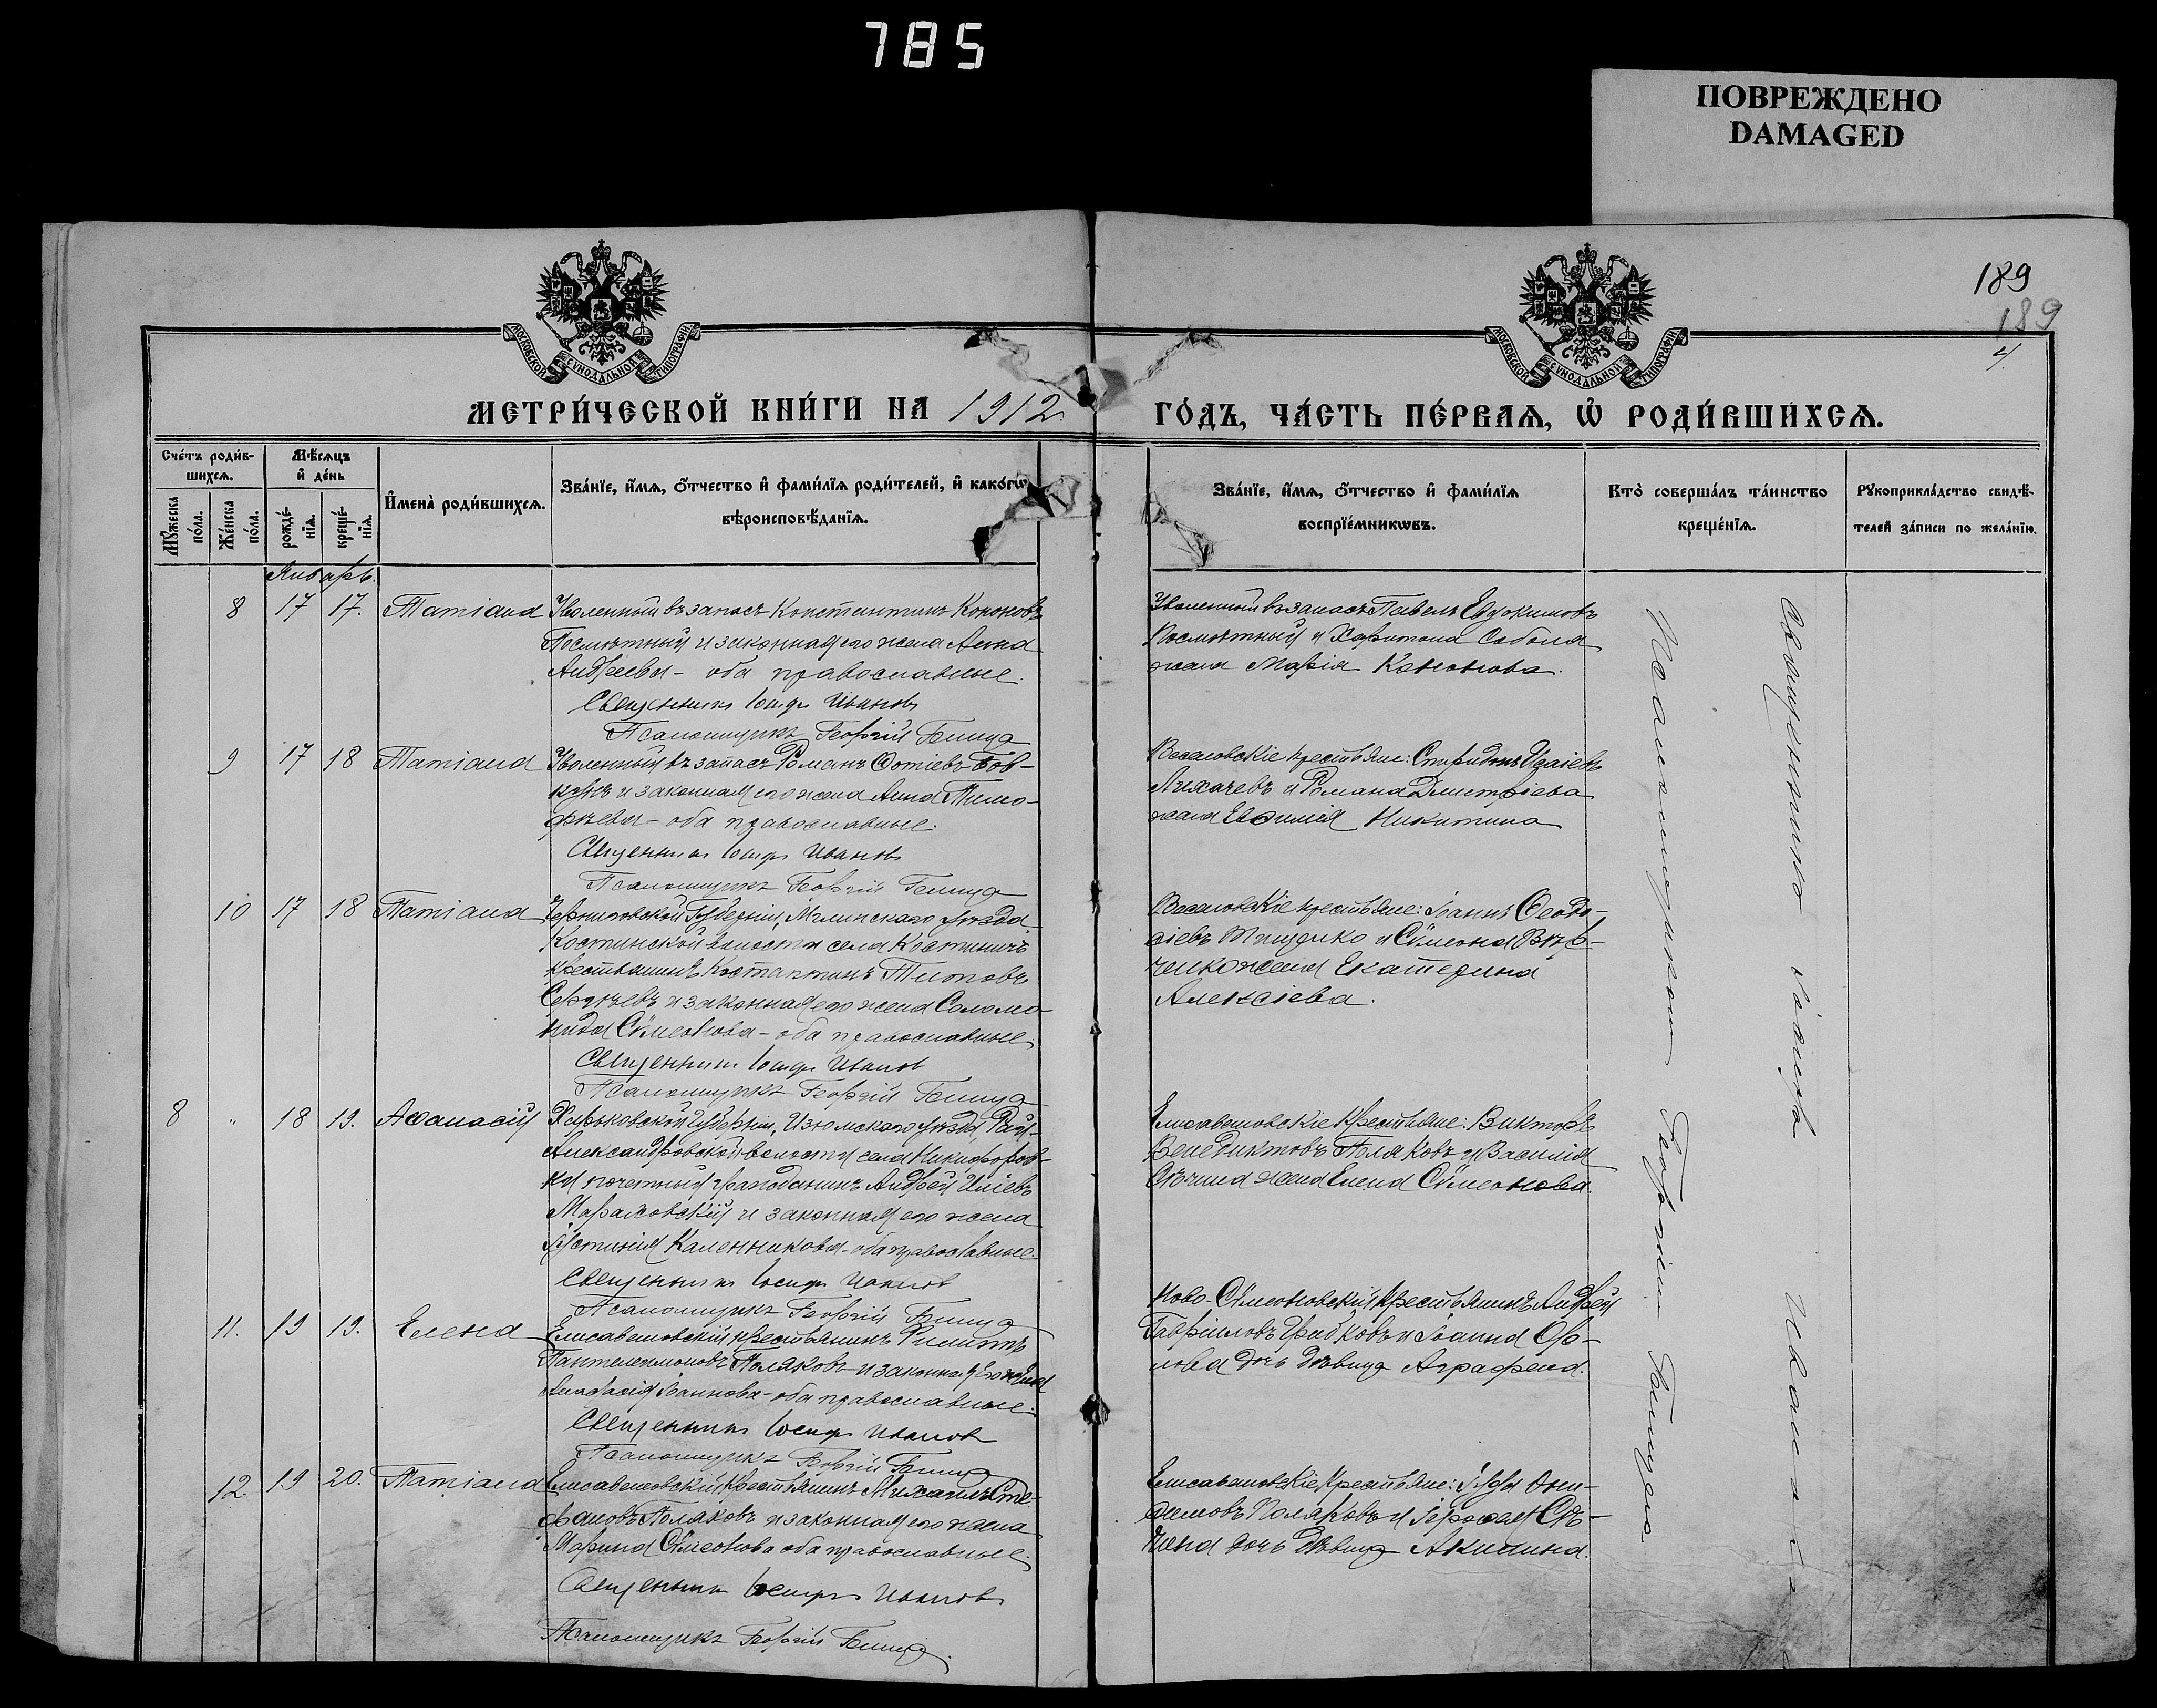 785
ПОВРЕЖДЕНО
DAMAGED
189
189
4.
МОСКОВСКОЙ СѴНОДАЛЬНОЙ ТИПОГРАФІИ
МОСКОВСКОЙ СѴНОДАЛЬНОЙ ТИПОГРАФІИ
МЕТРИ́ЧЕСКОЙ КНИ́ГИ НА 1912 г.
ГО́ДЪ, ЧА́СТЬ ПЕ́РВАѦ, Ѡ҆ РОДИ́ВШИХСѦ.
Сче́тъ роди́в-
шихсѧ.
Мѹ́жеска по́ла.
Же́нска по́ла.
Мѣ́сѧцъ
и҆ де́нь
рожде́-
нїѧ.
креще́-
нїѧ.
И҆мена̀ роди́вшихсѧ.
Зва́нїе, и҆́мѧ, ѻ҆́тчество и҆ фами́лїѧ роди́телей, и҆ како́гѡ
вѣроисповѣ́данїѧ.
Зва́нїе, и҆́мѧ, ѻ҆́тчество и҆ фами́лїѧ
воспрїе́мникѡвъ.
Кто̀ соверша́лъ та́инство
креще́нїѧ.
Рѹкоприкла́дство свидѣ́-
телей за́писи по жела́нїю.
Январь.
8 17 17. Татіана
Уволенный въ запасъ Константинъ Кононовъ
Посмѣтный и законная его жена Анна
Андреева - оба православные.
Священникъ Іосифъ Ивановъ
Псаломщикъ Георгій
Уволенный въ запасъ Павелъ Евдокимовъ
Посмѣтный и Харитона Соболя
жена Марія Кононова.
9 17 18 Татіана
Уволенный въ запасъ Романъ Фотіевъ Бов-
кунъ и законная его жена Анна Тимо-
феева - оба православные.
Священникъ Іосифъ Ивановъ
Псаломщикъ Георгій
Веселовскіе крестьяне: Спиридонъ Исаіевъ
Лихачевъ и Романа Дмитріева
жена Евфимія Никитина
10 17 18 Татіана
Черниговской Губерніи, Мглинскаго уѣзда
Костинской волости села Костиничъ
крестьянинъ Константинъ Титовъ
Сергѣевъ и законная его жена Соломо-
нида Сѵмеонова - оба православные.
Священникъ Іосифъ Ивановъ
Псаломщикъ Георгій
Веселовскіе крестьяне: Іоаннъ Феодо-
сіевъ и Сѵмеона
жена Екатерина
Алексіева.
8 " 18 19. Афанасій
Харьковской Губерніи, Изюмскаго уѣзда, Рай-
Александровской волости села Никифоров-
ки почетный гражданинъ Андрей Иліевъ
и законная его жена
Іустинія Каленникова - оба православные.
Священникъ Іосифъ Ивановъ
Псаломщикъ Георгій
Елисаветовскіе крестьяне: Викторъ
Венедиктовъ Поляковъ и Василія
жена Елена Сѵмеонова.
11. 19 19. Елена
Елисаветовскій крестьянинъ Филиппъ
Пантелеимоновъ Поляковъ и законная его жена
Анастасія Іоаннова - оба православные.
Священникъ Іосифъ Ивановъ
Псаломщикъ Георгій
Ново-Сѵмеоновскій крестьянинъ Андрей
Гавріиловъ Грибковъ и Іоанна Ор-
лова дочь дѣвица Аграфена.
12. 19 20. Татіана
Елисаветовскій крестьянинъ Михаилъ Сте-
фановъ Поляковъ и законная его жена
Марина Сѵмеонова оба православные.
Священникъ Іосифъ Ивановъ
Псаломщикъ Георгій
Елисаветовскіе крестьяне: Іуда
Поляковъ и
дочь дѣвица Акилина.
Священникъ Іосифъ Ивановъ
Псаломщикомъ Георгіемъ